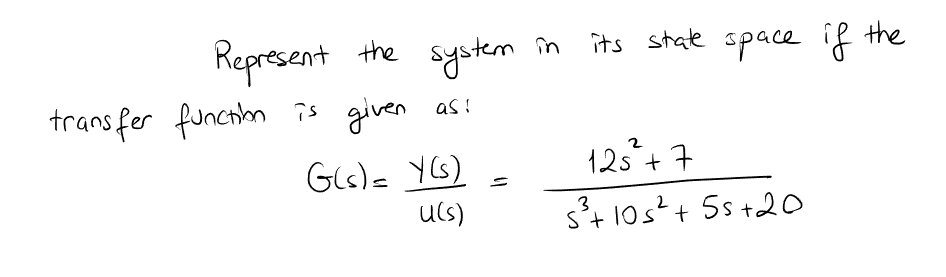 Represent the system in its state space if the
transfer function is given as:
G(s) = Y(s) / U(s) = (12s² + 7) / (s³ + 10s² + 5s + 20)